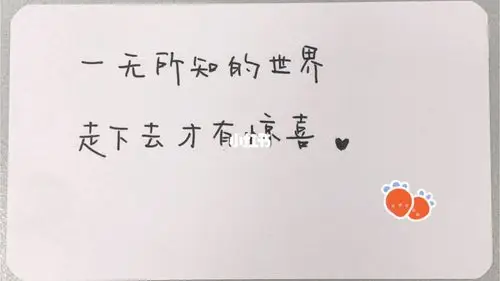 一无所知的世界
走下去才有惊喜
小红书